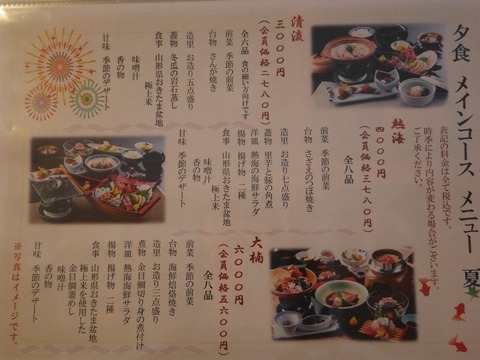 夕食 メインコース メニュー 夏
表記の料金は全て税込です。
時季により内容が変わる場合がございます。
ご了承ください。
清流
三〇〇〇円
（会員価格二七八〇円）
全六品 食の細い方向けです
前菜 季節の前菜
台物 さんが焼き
造里 お造り五点盛り
蓋物 冬瓜の岩石蒸し
食事 山形県おきたま盆地
極上米
味噌汁
香の物
甘味 季節のデザート
熱海
四〇〇〇円
（会員価格三七八〇円）
全八品
前菜 季節の前菜
台物 さざえのつぼ焼き
造り お造り七点盛り
蓋物 里芋と豚の角煮
洋皿 熱海の海鮮サラダ
揚物 揚げ物 二種
食事 山形県おきたま盆地
極上米
味噌汁
香の物
甘味 季節のデザート
大楠
六〇〇〇円
（会員価格五六〇〇円）
全八品
前菜 季節の前菜
台物 海鮮焙烙焼き
造里 お造り二点盛り
煮物 金目鯛切り身の煮付け
洋皿 熱海海鮮サラダ
揚物 揚げ物 二種
食事 山形県おきたま盆地
極上米を使用した
金目鯛釜めし
味噌汁
香の物
甘味 季節のデザート
※写真はイメージです。